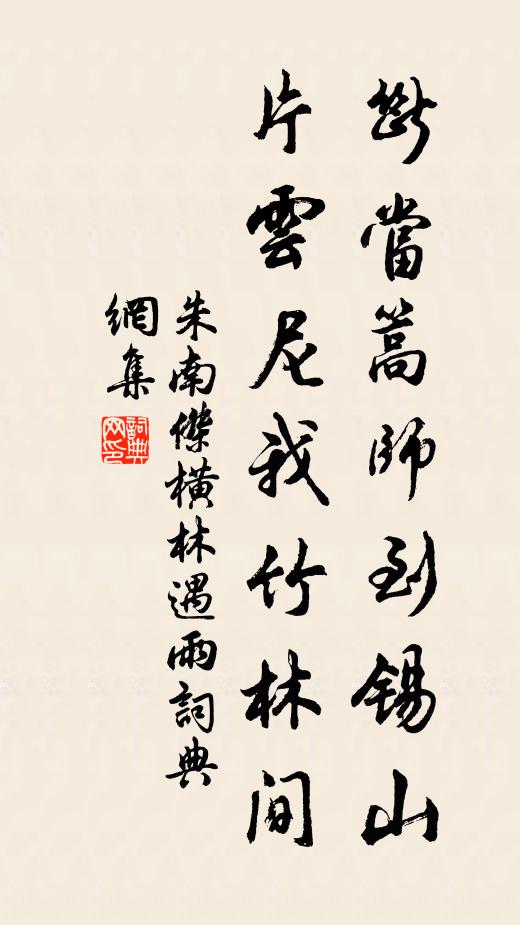 斷當篙師到錫山
片雲尼我竹林間
朱南傑橫林遇雨詞典
網集
詞典
网印